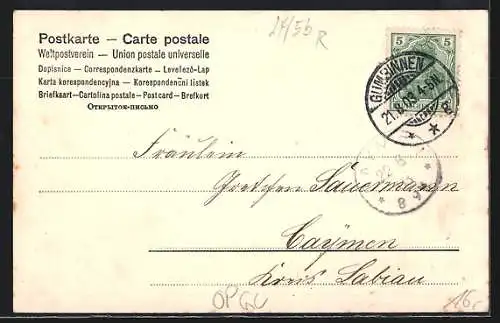 Postkarte — Carte postale
Weltpostverein — Union postale universelle
Dopisnice — Correspondenzkarte — Levelező-Lap
Karta korespondencyjna — Korespondenční listek
Briefkaart—Cartolina postale—Postcard—Brefkort
Открытое-письмо
24/5b
R
5 5
GUMBINNEN
21.8.03. 4-5N.
* * g
22 8
* 8-9 *
Fräulein
Gretchen Sauermann
Caymen
Kreis Labiau
OPGC
16,-